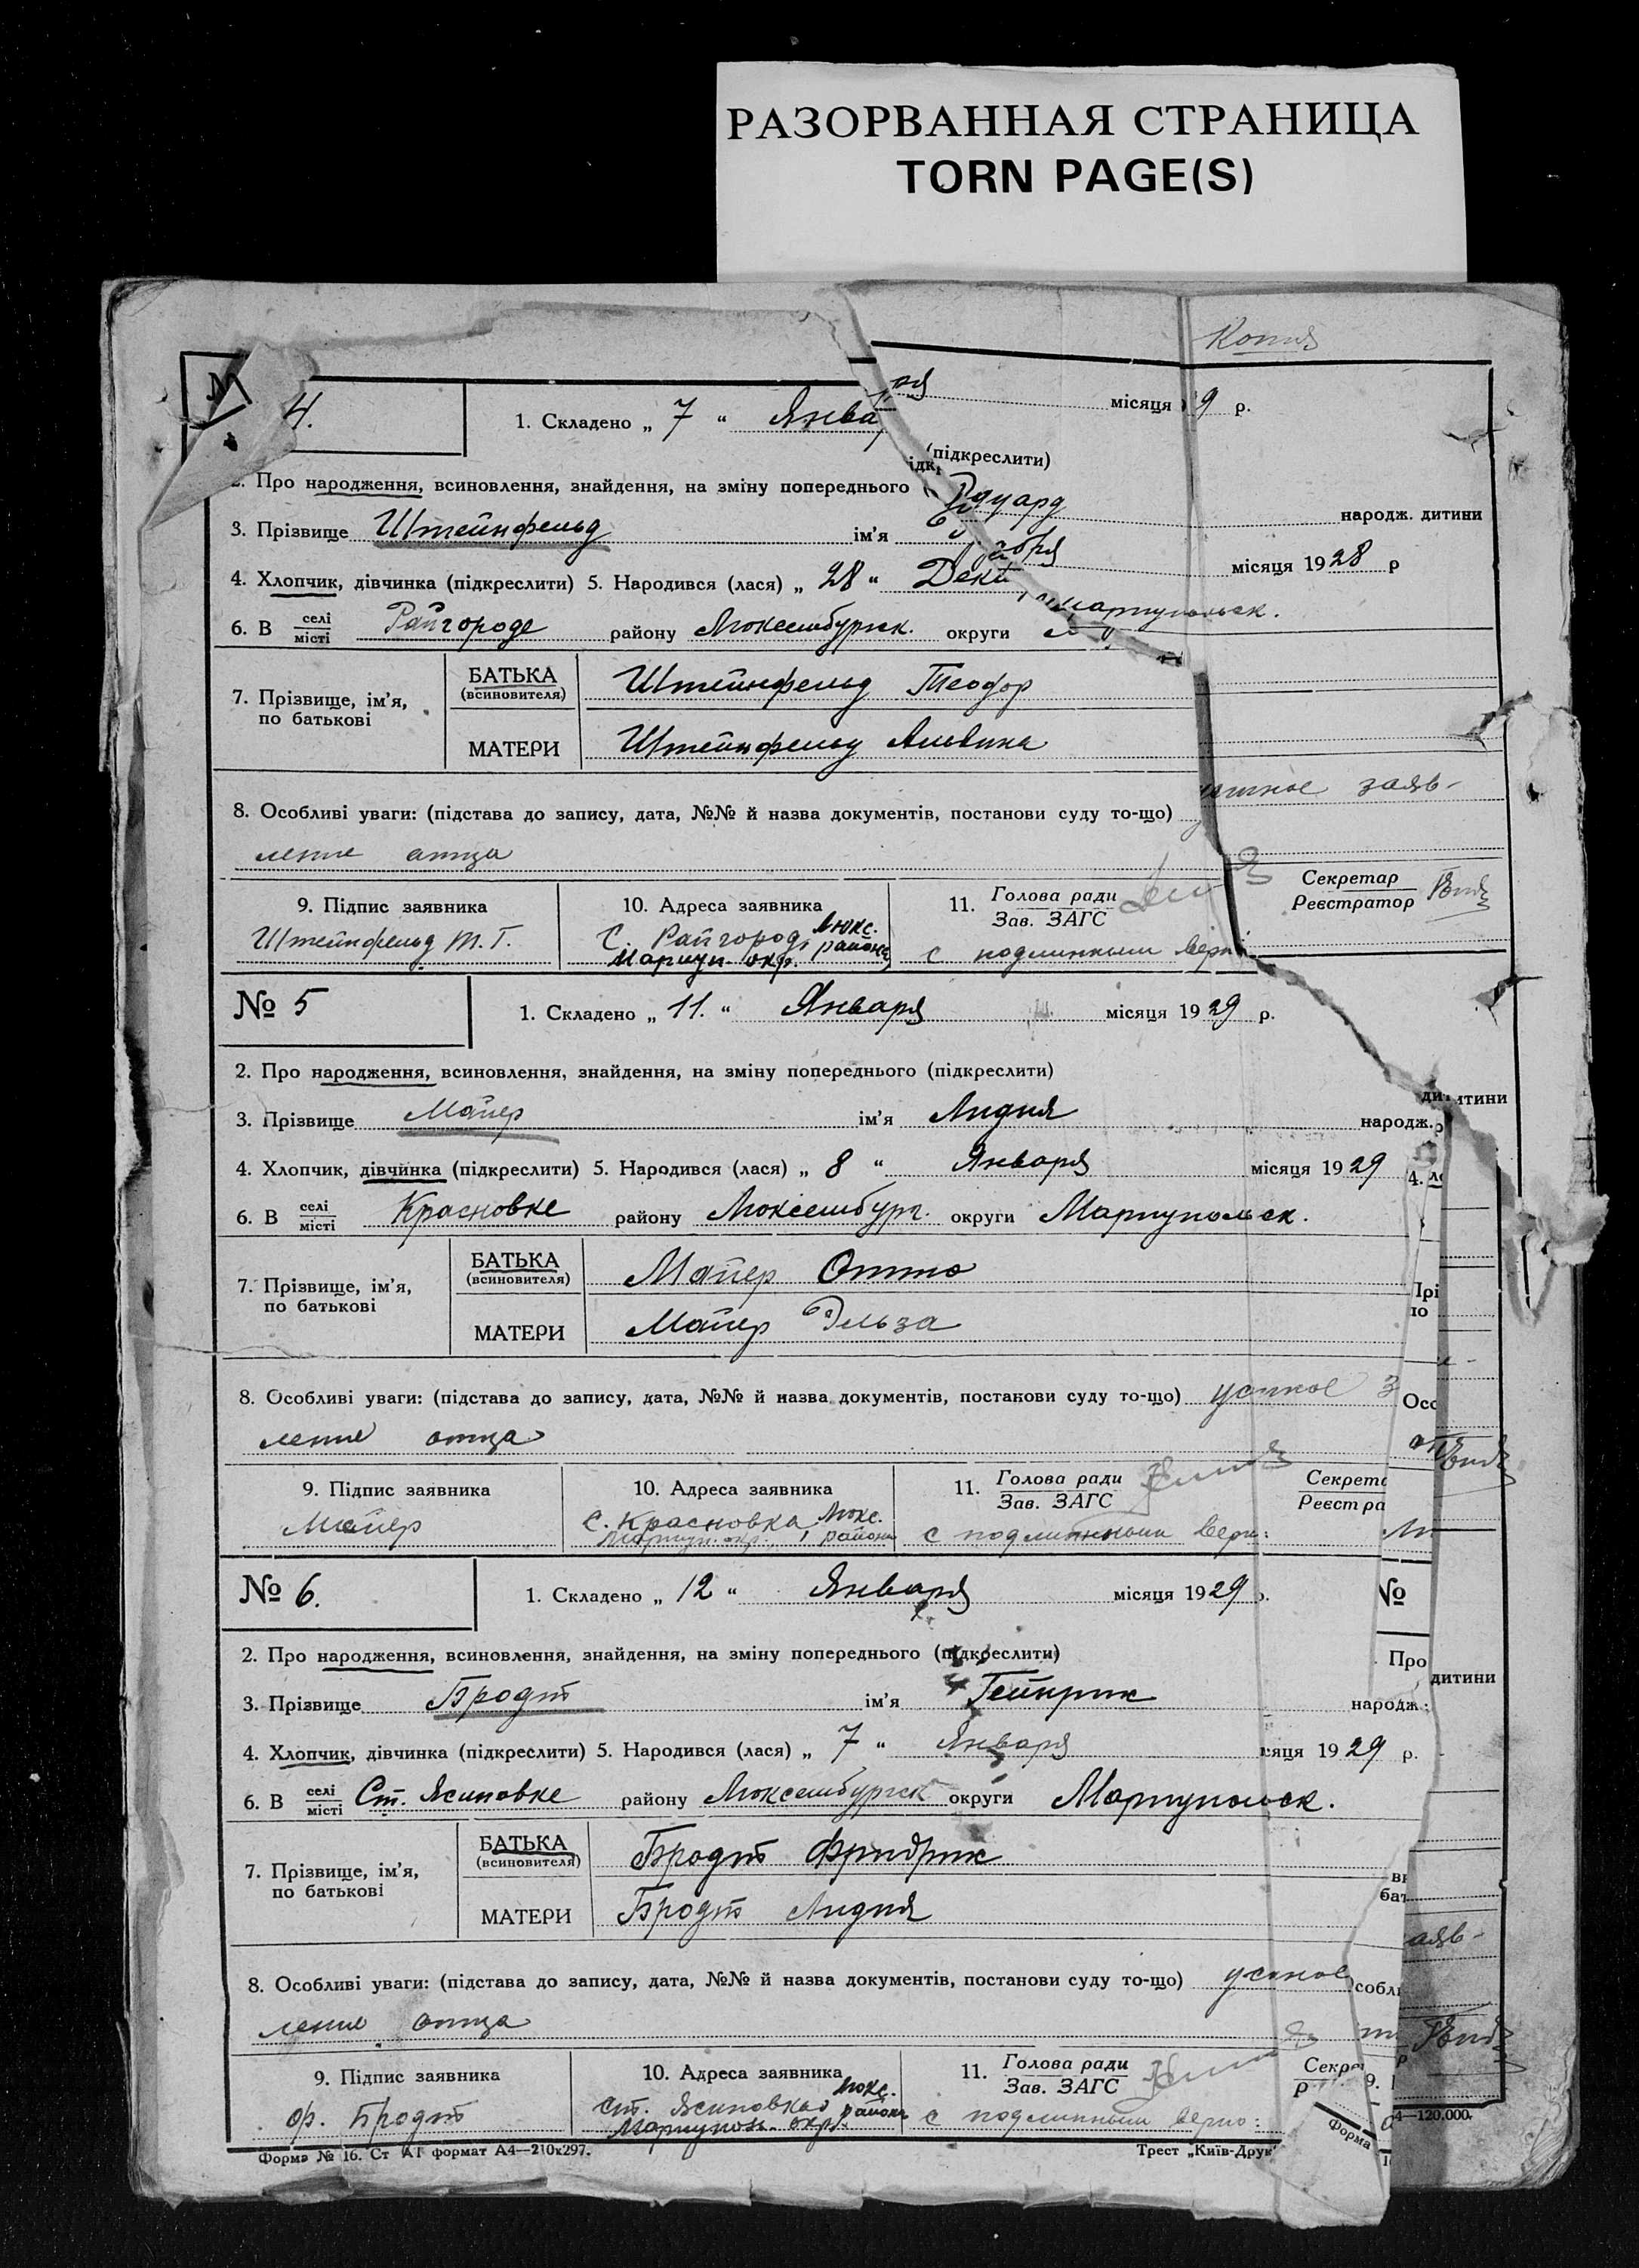 РАЗОРВАННАЯ СТРАНИЦА
TORN PAGE(S)
Копия
4.
1. Складено „ 7 “ Января місяця 9 р.
2. Про народження, всиновлення, знайдення, на зміну попереднього (підкреслити)
3. Прізвище Штейнфельд ім’я Эдуард народж. дитини
4. Хлопчик, дівчинка (підкреслити) 5. Народився (лася) „ 28 “ Декабря місяця 1928 р
6. В селі/місті Райгороде району Люксембургск. округи Мариупольск.
7. Прізвище, ім’я, по батькові
БАТЬКА (всиновителя) Штейнфельд Теодор
МАТЕРИ Штейнфельд Альвина
8. Особливі уваги: (підстава до запису, дата, №№ й назва документів, постанови суду то-що) устное заяв-
ление отца
9. Підпис заявника 10. Адреса заявника 11. Голова ради/Зав. ЗАГС Секретар/Реєстратор
Штейнфельд Т. Г. С. Райгород, Люкс. района Мариуп. окр. с подлинным верн
№ 5
1. Складено „ 11. “ Января місяця 1929 р.
2. Про народження, всиновлення, знайдення, на зміну попереднього (підкреслити)
3. Прізвище Майер ім’я Лидия народж. дитини
4. Хлопчик, дівчинка (підкреслити) 5. Народився (лася) „ 8 “ Января місяця 1929
6. В селі/місті Красновке району Люксембург. округи Мариупольск.
7. Прізвище, ім’я, по батькові
БАТЬКА (всиновителя) Майер Отто
МАТЕРИ Майер Эльза
8. Особливі уваги: (підстава до запису, дата, №№ й назва документів, постанови суду то-що) устное з
ление отца
9. Підпис заявника 10. Адреса заявника 11. Голова ради/Зав. ЗАГС Секрета/Реєстра
Майер С. Красновка, Люкс. района Мариуп. окр. с подлинным верн:
№ 6.
1. Складено „ 12 “ Января місяця 1929 р.
2. Про народження, всиновлення, знайдення, на зміну попереднього (підкреслити)
3. Прізвище Бродт ім’я Гейнрик народж. дитини
4. Хлопчик, дівчинка (підкреслити) 5. Народився (лася) „ 7 “ Января сяця 1929 р.
6. В селі/місті Ст. Ясиновке району Люксембургск округи Мариупольск.
7. Прізвище, ім’я, по батькові
БАТЬКА (всиновителя) Бродт Фридрик
МАТЕРИ Бродт Лидия
8. Особливі уваги: (підстава до запису, дата, №№ й назва документів, постанови суду то-що) устное аяв-
ление отца
9. Підпис заявника 10. Адреса заявника 11. Голова ради/Зав. ЗАГС Секре
Ф. Бродт Ст. Ясиновка Люкс. района Мариуполь. окр. с подлинным верно:
Форма № 16. Ст А1 формат А4—210х297. Трест „Київ-Друк“ 4—120.000.